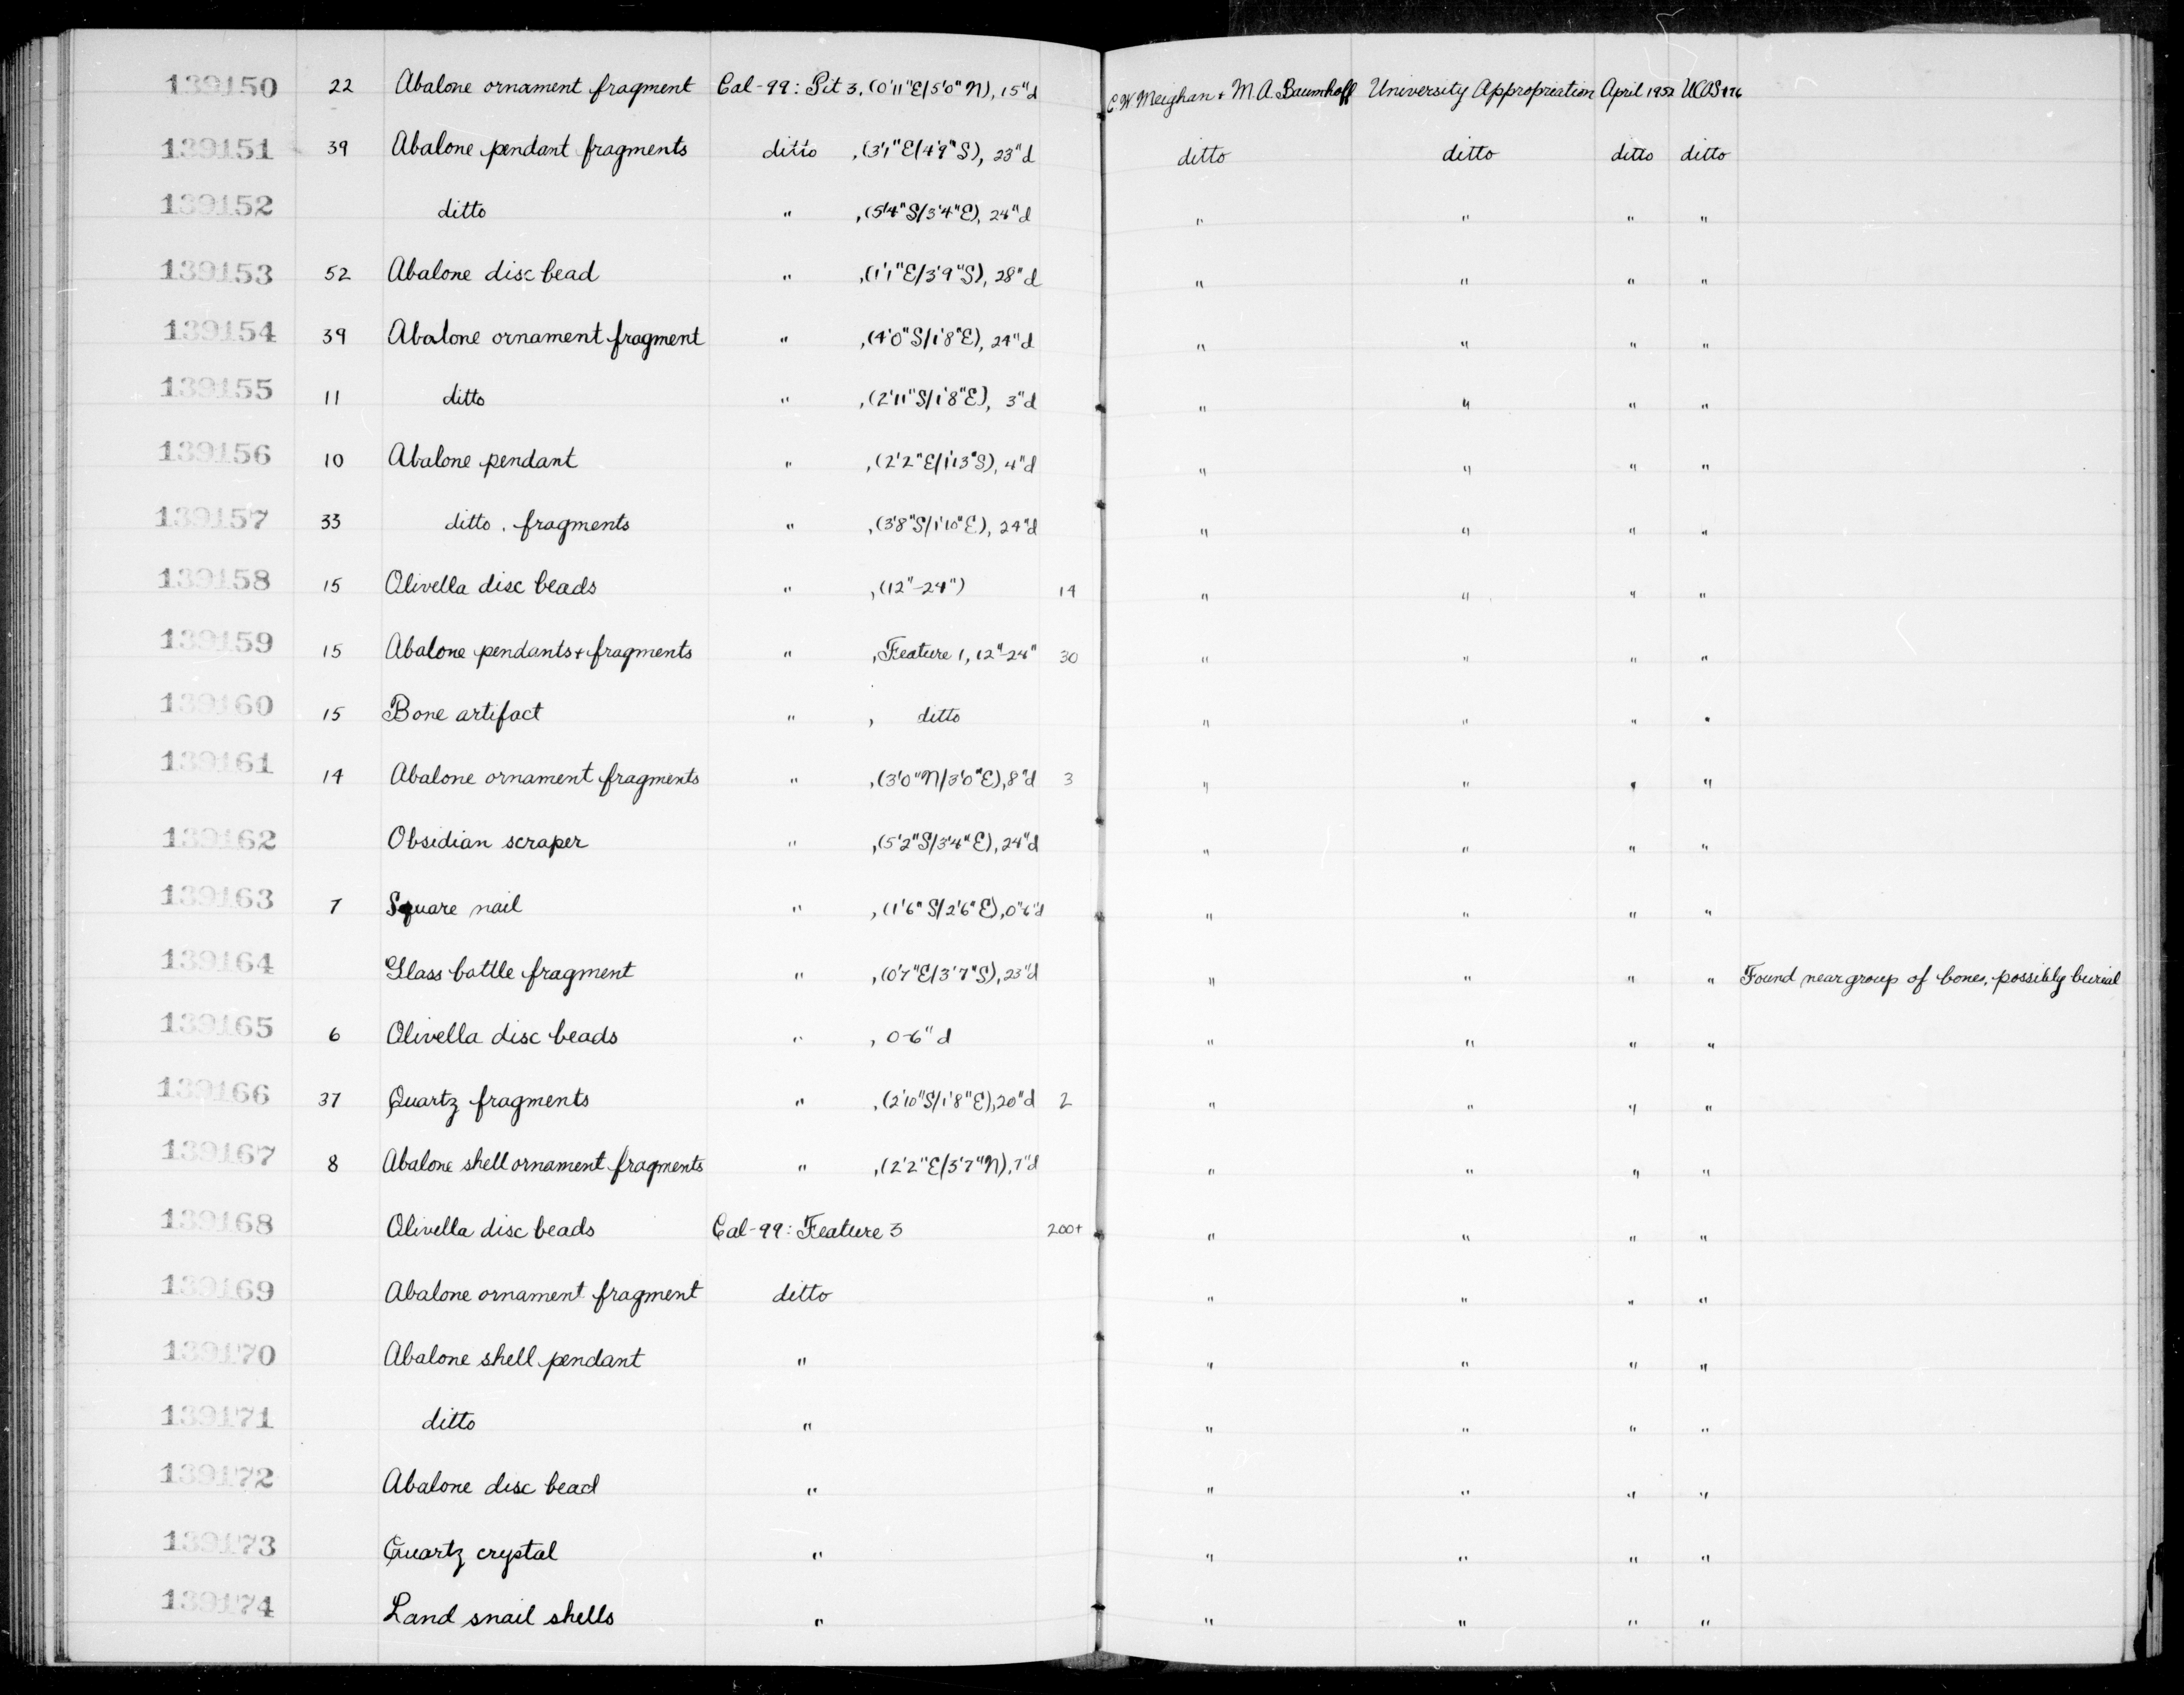 139150 22 Abalone ornament fragment Cal-99: Pit 3, (0'11"E/5'0"N), 15"d C W Meighan + M. A. Baumhoff University Appropriation April 1952 UCAS 176
139151 39 Abalone pendant fragments ditto , (3'1"E/4'9"S), 23"d ditto ditto ditto ditto
139152 ditto " , (5'4"S/3'4"E), 24"d " " " "
139153 52 Abalone disc bead " , (1'1"E/3'9"S), 28"d " " " "
139154 39 Abalone ornament fragment " , (4'0"S/1'8"E), 24"d " " " "
139155 11 ditto " , (2'11"S/1'8"E), 3"d " " " "
139156 10 Abalone pendant " , (2'2"E/1'13"S), 4"d " " " "
139157 33 ditto , fragments " , (3'8"S/1'10"E), 24"d " " " "
139158 15 Olivella disc beads " , (12"-24") 14 " " " "
139159 15 Abalone pendants + fragments " , Feature 1, 12"-24" 30 " " " "
139160 15 Bone artifact " , ditto " " " "
139161 14 Abalone ornament fragments " , (3'0"N/3'0"E), 8"d 3 " " " "
139162 Obsidian scraper " , (5'2"S/3'4"E), 24"d " " " "
139163 7 Square nail " , (1'6"S/2'6"E), 0"6"d " " " "
139164 Glass bottle fragment " , (0'7"E/3'7"S), 23"d " " " " Found near group of bones, possibly burial
139165 6 Olivella disc beads " , 0-6" d " " " "
139166 37 Quartz fragments " , (2'10"S/1'8"E), 20"d 2 " " " "
139167 8 Abalone shell ornament fragments " , (2'2"E/3'7"N), 7"d " " " "
139168 Olivella disc beads Cal-99: Feature 3 200+ " " " "
139169 Abalone ornament fragment ditto " " " "
139170 Abalone shell pendant " " " " "
139171 ditto " " " " "
139172 Abalone disc bead " " " " "
139173 Quartz crystal " " " " "
139174 Land snail shells " " " " "